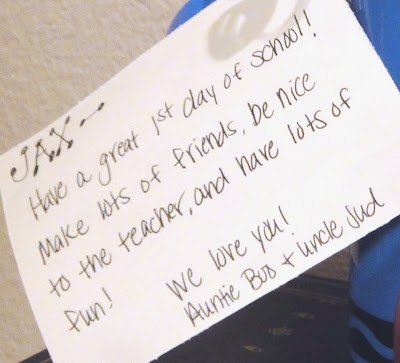 JAX –
Have a great 1st day of school!
Make lots of friends, be nice
to the teacher, and have lots of
fun!
We love you!
Auntie Boo + uncle Jud